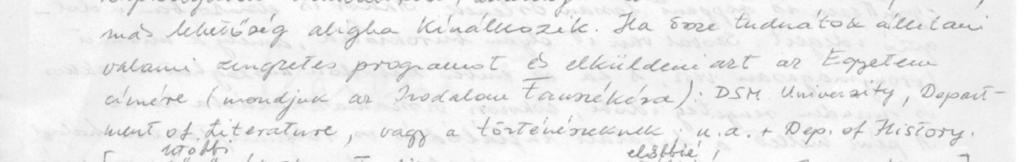 más lehetőség aligha kínálkozik. Ha össze tudnátok állitani
valami zengzetes programot és elküldeni azt az Egyetem
címére (mondjuk az Irodalom Tanszékéra): DSM University, Depart-
ment of Literature, vagy a történészeknek: u.a. + Dep. of History.
utóbbi előbbié,